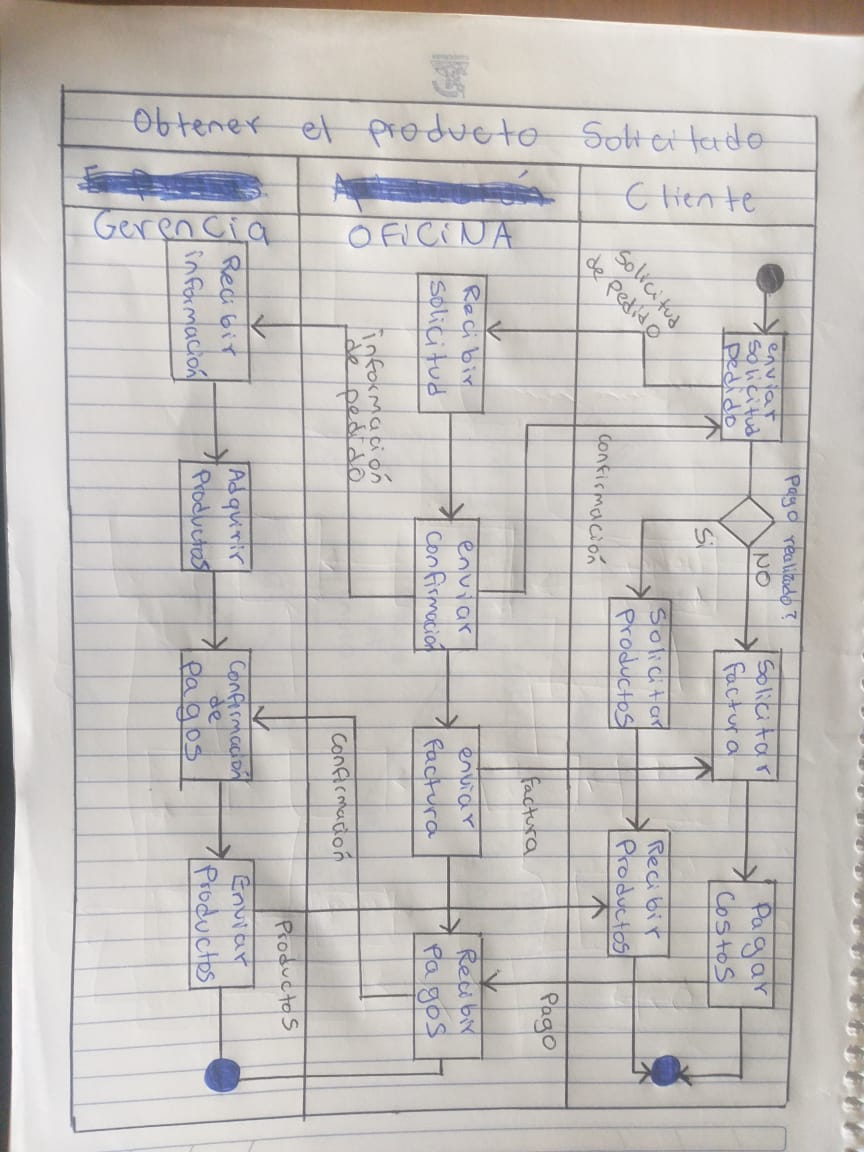 Obtener el producto Solicitado
Cliente
enviar
Solicitud
pedido
Pago realizado?
NO
Si
Solicitar
factura
Pagar
Costos
Solicitud
de pedido
Confirmación
Solicitar
Productos
Recibir
Productos
OFICINA
factura
Pago
Recibir
Solicitud
enviar
Confirmación
enviar
factura
Recibir
Pagos
información
de pedido
Confirmación
Productos
Gerencia
Recibir
información
Adquirir
Productos
Confirmación
de
Pagos
Enviar
Productos